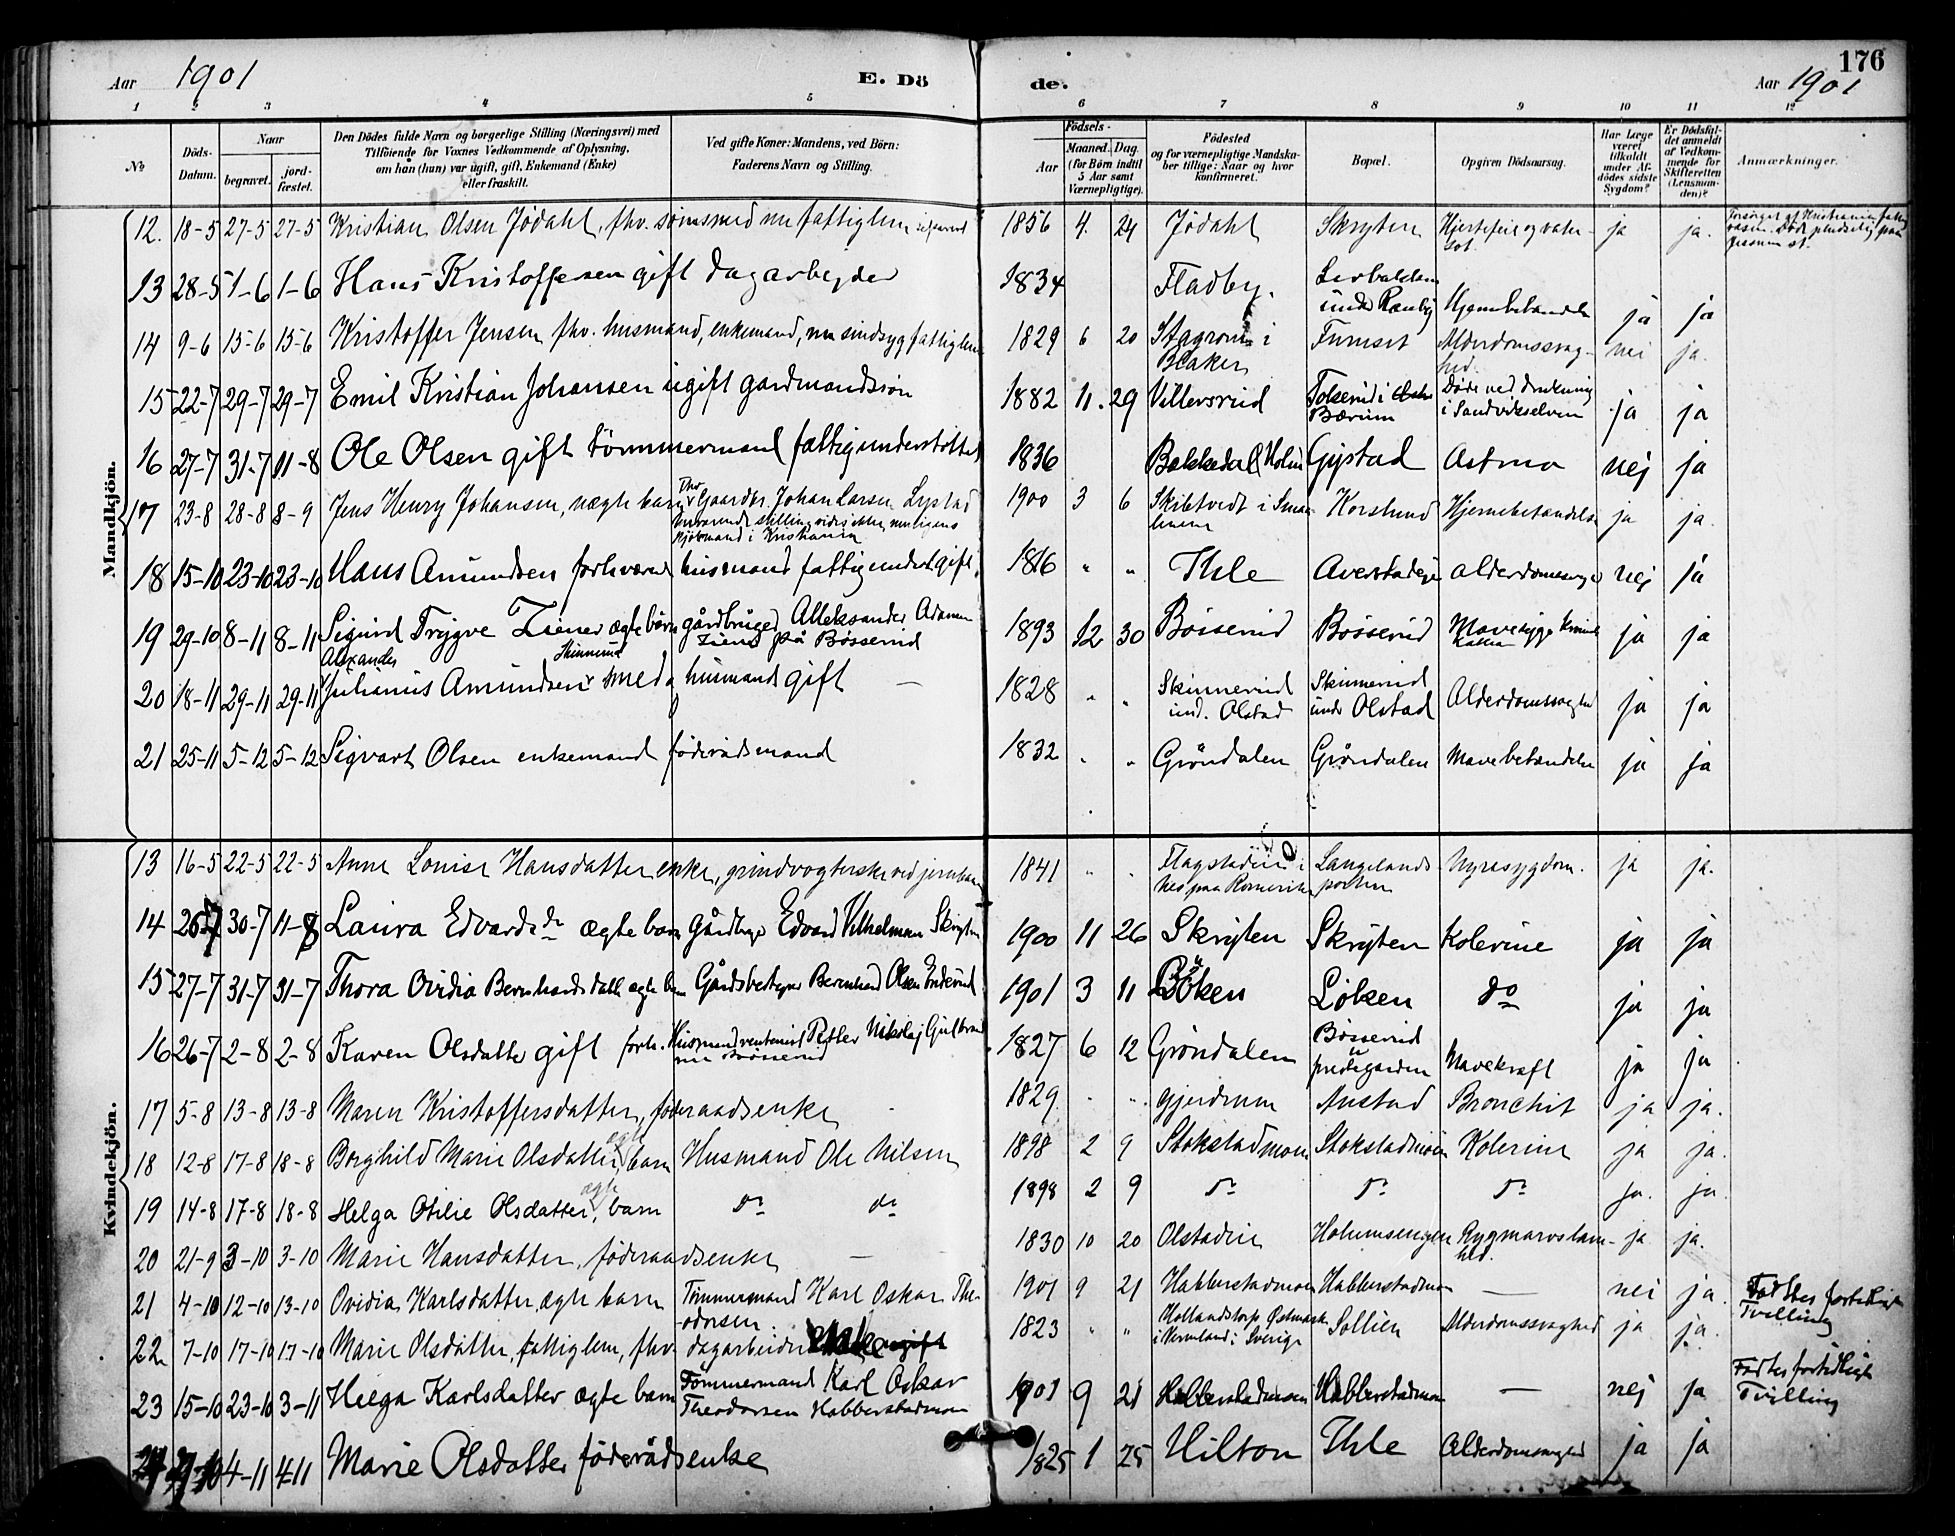 176
Aar 1901 E. Dö de. Aar 1901
1 2 3 4 5 6 7 8 9 10 11 12
No Döds-Datum. Naar begravet. jord-fæstet. Den Dödes fulde Navn og borgerlige Stilling (Næringsvei) med Tilföiende for Voxnes Vedkommende af Oplysning, om han (hun) var ugift, gift, Enkemand (Enke) eller fraskilt. Ved gifte Koner: Mandens, ved Börn: Faderens Navn og Stilling. Födsels- Aar Maaned. Dag. (for Börn indtil 5 Aar samt Værnepligtige). Födested og for værnepligtige Mandskaber tillige: Naar og hvor konfirmeret. Bopæl. Opgiven Dödsaarsag. Har Læge været tilkaldt under Afdödes sidste Sygdom? Er Dödsfaldet anmeldt af Vedkommende for Skifteretten (Lensmanden)? Anmærkninger.
Mandkjön.
12. 18-5 27-5 27-5 Kristian Olsen Jödahl, fhv. sömsmed nu fattiglem 1856 4. 24 Jödahl Skryten Hjertefeil og vatersot. ja ja.
13 28-5 1-6 1-6 Hans Kristoffersen gift dagarbejder 1834 Fladby. Hjernebetændelse ja ja
14 9-6 15-6 15-6 Kristoffer Jensen fhv. husmand, enkemand, nu sindsyg fattiglem 1829 6 20 i Blaker Furuset Alderdomssvaghed. nei ja.
15 22-7 29-7 29-7 Emil Kristian Johansen ugift gardmandssön 1882 11. 29 Villersrud i Bærum Döde ved drukning i Sandvikselven ja ja
16 27-7 31-7 11-8 Ole Olsen gift tömmermand fattigunderstöttet 1836 Bakkedal Holm Gystad Astma nej ja
17 23-8 28-8 8-9 Jens Henry Johansen, uægte barn Fhv Gaardbr. Johan Larsen Lystad nuværende stilling vides ikke, muligens kjöbmand i Kristiania 1900 3 6 Skibtvedt i Smaalenene Korslund Hjernebetændelse ja ja.
18 15-10 23-10 23-10 Hans Amundsen forhværend husmand fattigunderst. gift. 1816 " " Ihle Alderdomssvag nej ja
19 29-10 8-11 8-11 Sigurd Trygve Ziener ægte barn gårdbruger Alleksander Adamsen Ziener på Bösserud 1893 12 30 Bösserud Bösserud Mavesyge ja ja
20 18-11 29-11 29-11 Alexander Julianus Amundsen Skinnerud smed & husmand gift — 1828 " " Skinnerud und. Olstad Skinnerud under Olstad Alderdomssvaghed ja ja
21 25-11 5-12 5-12 Sigvart Olsen enkemand föderådsmand 1832 " " Gröndalen Gröndalen Mavebetændelse ja ja
Kvindekjön.
13 16-5 22-5 22-5 Anne Louise Hansdatter enke, grindvogterske ved jernbanen 1841 " " Flagstadeie i Nes paa Romerike Langelandsporten Nyresygdom. ja ja.
14 26-7 30-7 11-8 Laura Edvardsdr ægte barn Gårdbrger Edvard Vilhelmsen Skryten 1900 11 26 Skryten Skryten Kolerine ja ja
15 27-7 31-7 31-7 Thora Ovidia Bernhardsdatt ægte barn Gårdsbestyrer Bernhard Olsen 1901 3 11 Löken Löken do ja ja
16 26-7 2-8 2-8 Karen Olsdatter gift forh. Husmand Petter Nikolaj 1827 6 12 Gröndalen Bösserud Mavekræft ja ja
17 5-8 13-8 13-8 Maren Kristoffersdatter, föderaadsenke 1829 " " Gjerdrum Austad Bronchit ja ja.
18 12-8 17-8 18-8 Borghild Marie Olsdatter, ægte barn Husmand Ole Nilsen 1898 2 9 Stokstadmoen Stokstadmoen Kolerine ja ja.
19 14-8 17-8 18-8 Helga Otilie Olsdatter, ægte barn do do 1898 2 9 do do do ja. ja.
20 21-9 3-10 3-10 Marie Hansdatter, föderaadsenke — 1830 10 20 Olstadeie Holumsengen Rygmarvslamhed. ja ja.
21 4-10 12-10 13-10 Ovidia Karlsdatter ægte barn Tömmermand Karl Oskar Theodorsen. 1901 9 21 Habberstadmoen Habberstadmoen — nei ja Födtes fortidligt Tvilling
22 7-10 17-10 17-10 Marie Olsdatter, fattiglem, fhv. dagarbeider 1823 " " i Vermland i Sverige Sollien Alderdomssvaghed ja ja.
23 15-10 23-10 3-11 Helga Karlsdatter ægte barn Tömmermand Karl Oskar Theodorsen Habberstadmoen 1901 9 21 Habberstadmoen Habberstadmoen — nej ja Födtes fortidligt Tvilling
24 27-10 4-11 4-11 Marie Olsdatter föderådsenke 1825 1 25 Hilton Ihle Alderdomsvaghed ja ja